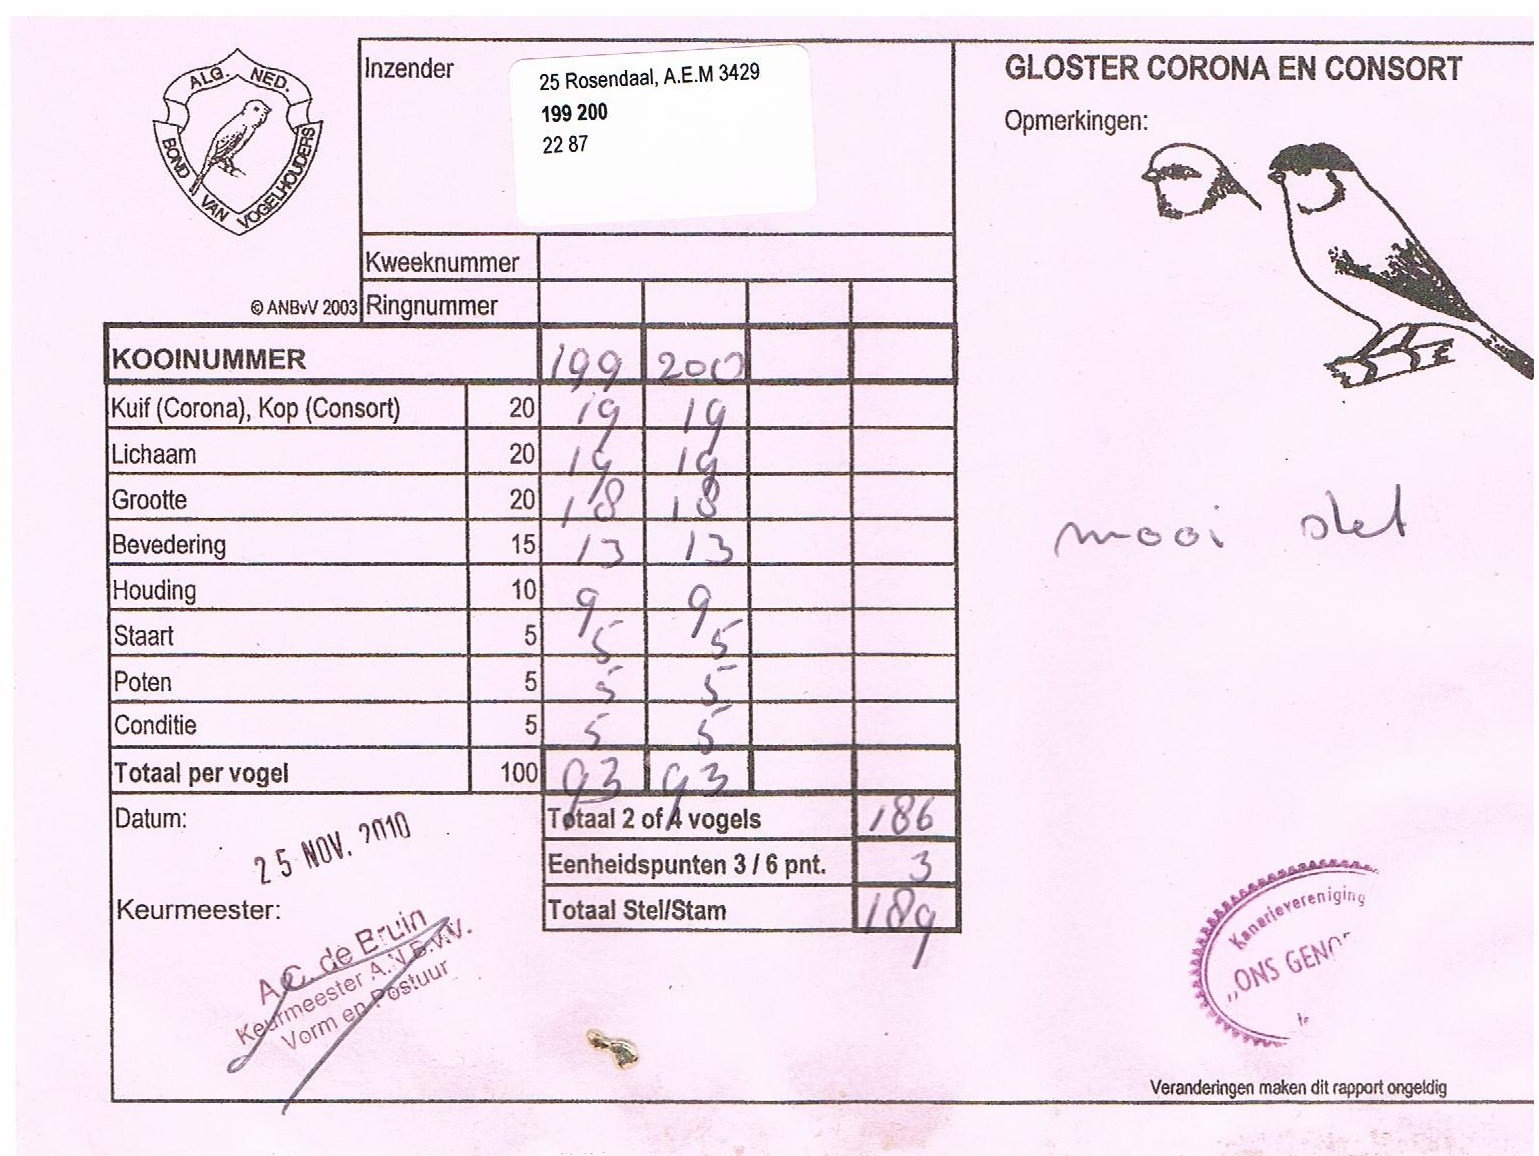 ALG. NED.
BOND VAN VOGELHOUDERS
© ANBvV 2003
Inzender
25 Rosendaal, A.E.M 3429
199 200
22 87
Kweeknummer
Ringnummer
KOOINUMMER 199 200
Kuif (Corona), Kop (Consort) 20 19 19
Lichaam 20 19 19
Grootte 20 18 18
Bevedering 15 13 13
Houding 10 9 9
Staart 5 5 5
Poten 5 5 5
Conditie 5 5 5
Totaal per vogel 100 93 93
Totaal 2 of 4 vogels 186
Eenheidspunten 3 / 6 pnt. 3
Totaal Stel/Stam 189
Datum:
25 NOV. 2010
Keurmeester:
A.C. de Bruin
Keurmeester A.N.B.v.V.
Vorm en Postuur
GLOSTER CORONA EN CONSORT
Opmerkingen:
mooi stel
Kanarievereniging
„ONS GENOE
te
Veranderingen maken dit rapport ongeldig